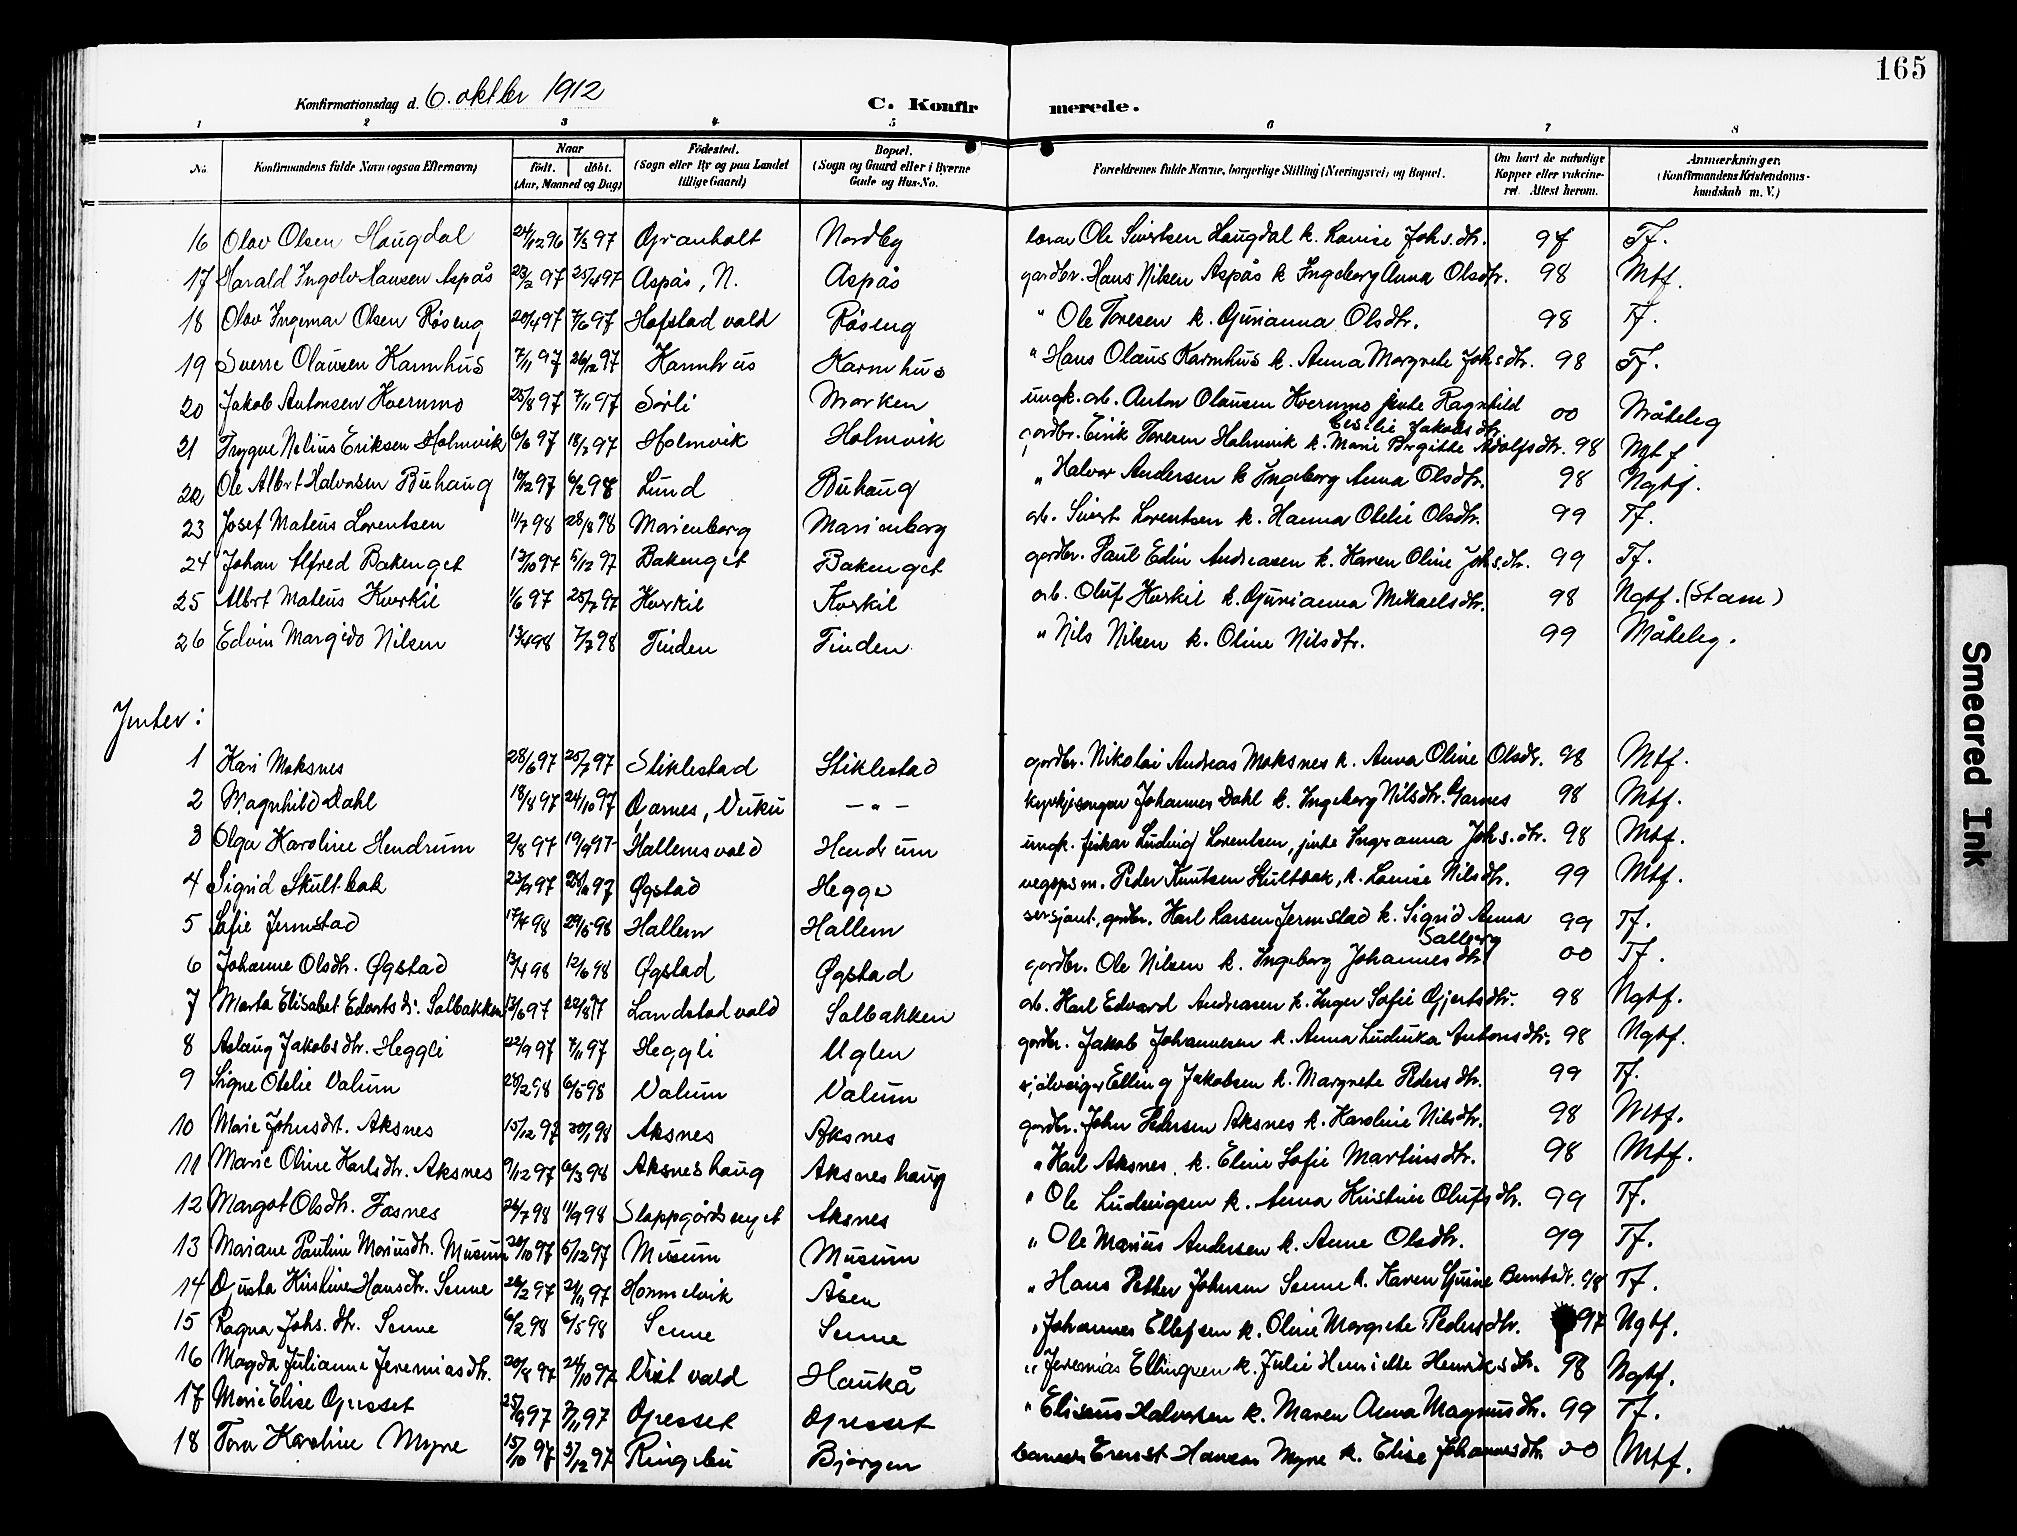 165
Konfirmationsdag d. 6. oktbr 1912 C. Konfirmerede.
1 2 3 4 5 6 7 8
No. Konfirmandens fulde Navn (ogsaa Efternavn) Naar født. døbt. (Aar, Maaned og Dag) Fødested. (Sogn eller By og paa Landet tillige Gaard) Bopæl. (Sogn og Gaard eller i Byerne Gade og Hus-No. Forældrenes fulde Navne, borgerlige Stilling (Næringsvei) og Bopæl. Om havt de naturlige Kopper eller vaccineret. Attest herom. Anmærkninger. (Konfirmandens Kristendomskundskab m. V.)
16 Olav Olsen Haugdal 24/12 96 7/3 97 Granholt Nordby lærar Ole Sivertsen Haugdal k. Lovise Johs.dtr. 97 Tf.
17 Harald Ingolv Hansen Aspås 23/2 97 25/4 97 Aspås, N. Aspås gardbr. Hans Nilsen Aspås k. Ingeborg Anna Olsdtr. 98 Mtf.
18 Olav Ingemar Olsen Røseng 20/4 97 7/6 97 Hofstad vald Røseng " Ole Toresen k. Gurianna Olsdtr. 98 Tf.
19 Sverre Olausen Karmhus 7/11 97 26/12 97 Karmhus Karmhus " Hans Olaus Karmhus k. Anna Margrete Johsdtr. 98 Tf.
20 Jakob Antonsen Kvernmo 25/8 97 7/11 97 Sørli Marken ungk. arb. Anton Olausen Kvernmo jente Ragnhild Cecilie Jakobsdtr. 00 Måteleg
21 Trygve Nelius Eriksen Holmvik 6/6 97 18/7 97 Holmvik Holmvik gardbr. Eirik Toresen Holmvik k. Marie Birgitte Adolfsdtr. 98 Ngtf
22 Ole Albrt Halvorsen Buhaug 19/12 97 6/2 98 Lund Buhaug " Halvor Andersen k Ingeborg Anna Olsdtr. 98 Ngtf.
23 Josef Mateus Lorentsen 11/7 98 28/8 98 Marienborg Marienborg arb. Sivert Lorentsen k. Hanna Otelie Olsdtr. 99 Tf.
24 Johan Alfred Bakenget 12/10 97 5/12 97 Bakenget Bakenget gardbr. Paul Edin Andreasen k. Karen Oline Johs.dtr. 99 Tf.
25 Albrt Mateus Kverkil 1/6 97 25/7 97 Kverkil Kverkil arb. Oluf Kverkil k. Gurianna Mikaelsdtr. 98 Ngtf. (Stam)
26 Edvin Margido Nilsen 13/4 98 7/7 98 Tinden Tinden " Nils Nilsen k. Oline Nilsdtr. 99 Måteleg.
Jenter:
1 Kari Moksnes 28/6 97 25/7 97 Stiklestad Stiklestad gardbr. Nikolai Andreas Moksnes k. Anna Oline Olsdr. 98 Mtf.
2 Magnhild Dahl 18/8 97 24/10 97 Garnes, Vuku — " — kyrkjesongar Johannes Dahl k. Ingeborg Nilsdtr. Garnes 98 Mtf.
3 Olga Karoline Hendrum 2/8 97 19/9 97 Hallemsvald Hendrum ungk. fiskar Ludvig Lorentsen, jente Ingeranna Johs.dtr. 98 Mtf.
4 Sigrid Skultbak 23/9 97 Øgstad Hegge vegopsm. Peder Knutsen Skultbak, k. Lovise Nilsdtr. 99 Mtf.
5 Sofie Jermstad 17/4 98 29/5 98 Hallem Hallem sersjant, gardbr. Karl Larsen Jermstad k. Sigrid Anna Salberg 99 Tf.
6 Johanne Olsdtr. Øgstad 13/4 98 12/6 98 Øgstad Øgstad gardbr. Ole Nilsen k. Ingeborg Johannesdtr 00 Tf.
7 Marta Elisabet Edvartsdr. Solbakken 13/6 97 22/8 97 Landstad vald Solbakken arb. Karl Edvard Andreasen k. Inger Sofie Gjertsdtr. 98 Ngtf.
8 Aslaug Jakobsdtr. Heggli 22/9 97 7/11 97 Heggli Uglen gardbr. Jakob Johannesen k. Anna Ludvika Antonsdtr. 98 Ngtf.
9 Signe Otelie Valum 28/2 98 6/5 98 Valum Valum sjølveigar Elling Jakobsen k. Margrete Pedersdtr. 99 Tf.
10 Marie Johnsdrt. Aksnes 15/12 97 30/1 98 Aksnes Aksnes gardbr. John Pedersen Aksnes k. Karoline Nilsdtr. 98 Mtf.
11 Marie Oline Karlsdtr. Aksnes 9/12 97 6/3 98 Aksneshaug Aksneshaug " Karl Aksnes, k. Eline Sofie Martinsdtr. 98 Mtf.
12 Margot Olsdtr. Fosnes 26/7 98 11/9 98 Slappgårdseget Aksnes " Ole Ludvigsen k. Anna Kristine Olufsdtr. 99 Tf.
13 Mariane Pauline Mariusdtr. Musum 20/10 97 5/12 97 Musum Musum " Ole Marius Andersen k. Anne Olsdtr. 99 Tf.
14 Gusta Kristine Hansdtr. Senne 26/2 97 21/11 97 Hommelvik Åsen " Hans Petter Johnsen Senne k. Karen Gurine Berntsdr. 98 Tf.
15 Ragna Johs.dtr. Senne 6/2 98 6/5 98 Senne Senne " Johannes Ellefsen k. Oline Margrete Pedersdtr. 97 Ngtf.
16 Magda Julianne Jeremiasdtr. 20/8 97 24/10 97 Vist vald Haukå " Jeremias Ellingsen k. Julie Henriette Henriksdtr. 98 Ngtf.
17 Marie Elise Gresset 25/9 97 7/11 97 Gresset Gresset " Eliseus Halvorsen k. Maren Anna Magnusdtr. 99 Tf.
18 Tora Karoline Myne 15/10 97 5/12 97 Ringebu Bjørgen Ernst Hansen Myne k. Elise Johannesdtr 00 Mtf.
Smeared Ink